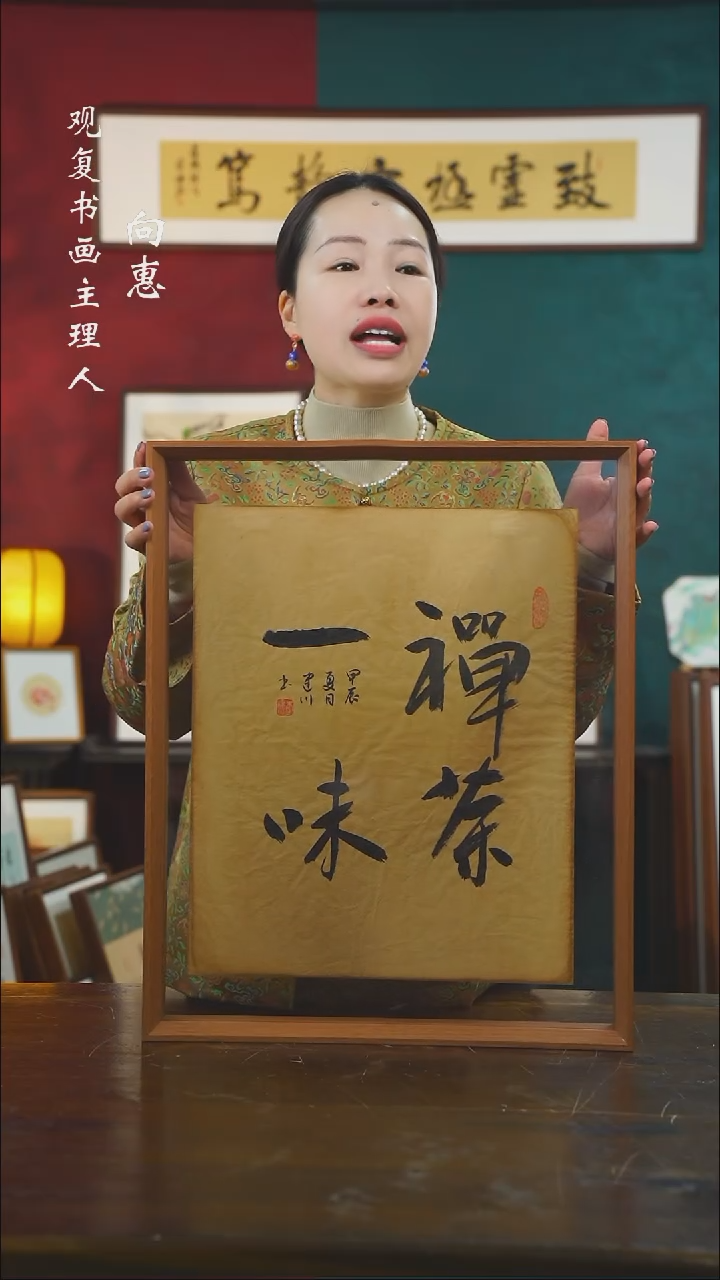 致虛極守靜篤
观复书画主理人
向惠
禪茶
一味
甲辰
夏月
建川
书